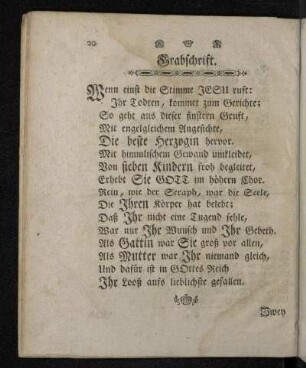 20
Grabschrift.
Wenn einst die Stimme JESU ruft:
Ihr Todten, kommet zum Gerichte;
So geht aus dieser finstern Gruft,
Mit engelgleichem Angesichte,
Die beste Herzogin hervor.
Mit himmlischem Gewand umkleidet,
Von sieben Kindern froh begleitet,
Erhebt Sie GOTT im höhern Chor.
Rein, wie der Seraph, war die Seele,
Die Ihren Körper hat belebt;
Daß Ihr nicht eine Tugend fehle,
War nur Ihr Wunsch und Ihr Gebeth.
Als Gattin war Sie groß vor allen,
Als Mutter war Ihr niemand gleich,
Und dafür ist in GOttes Reich
Ihr Looß aufs lieblichste gefallen.
Zwey